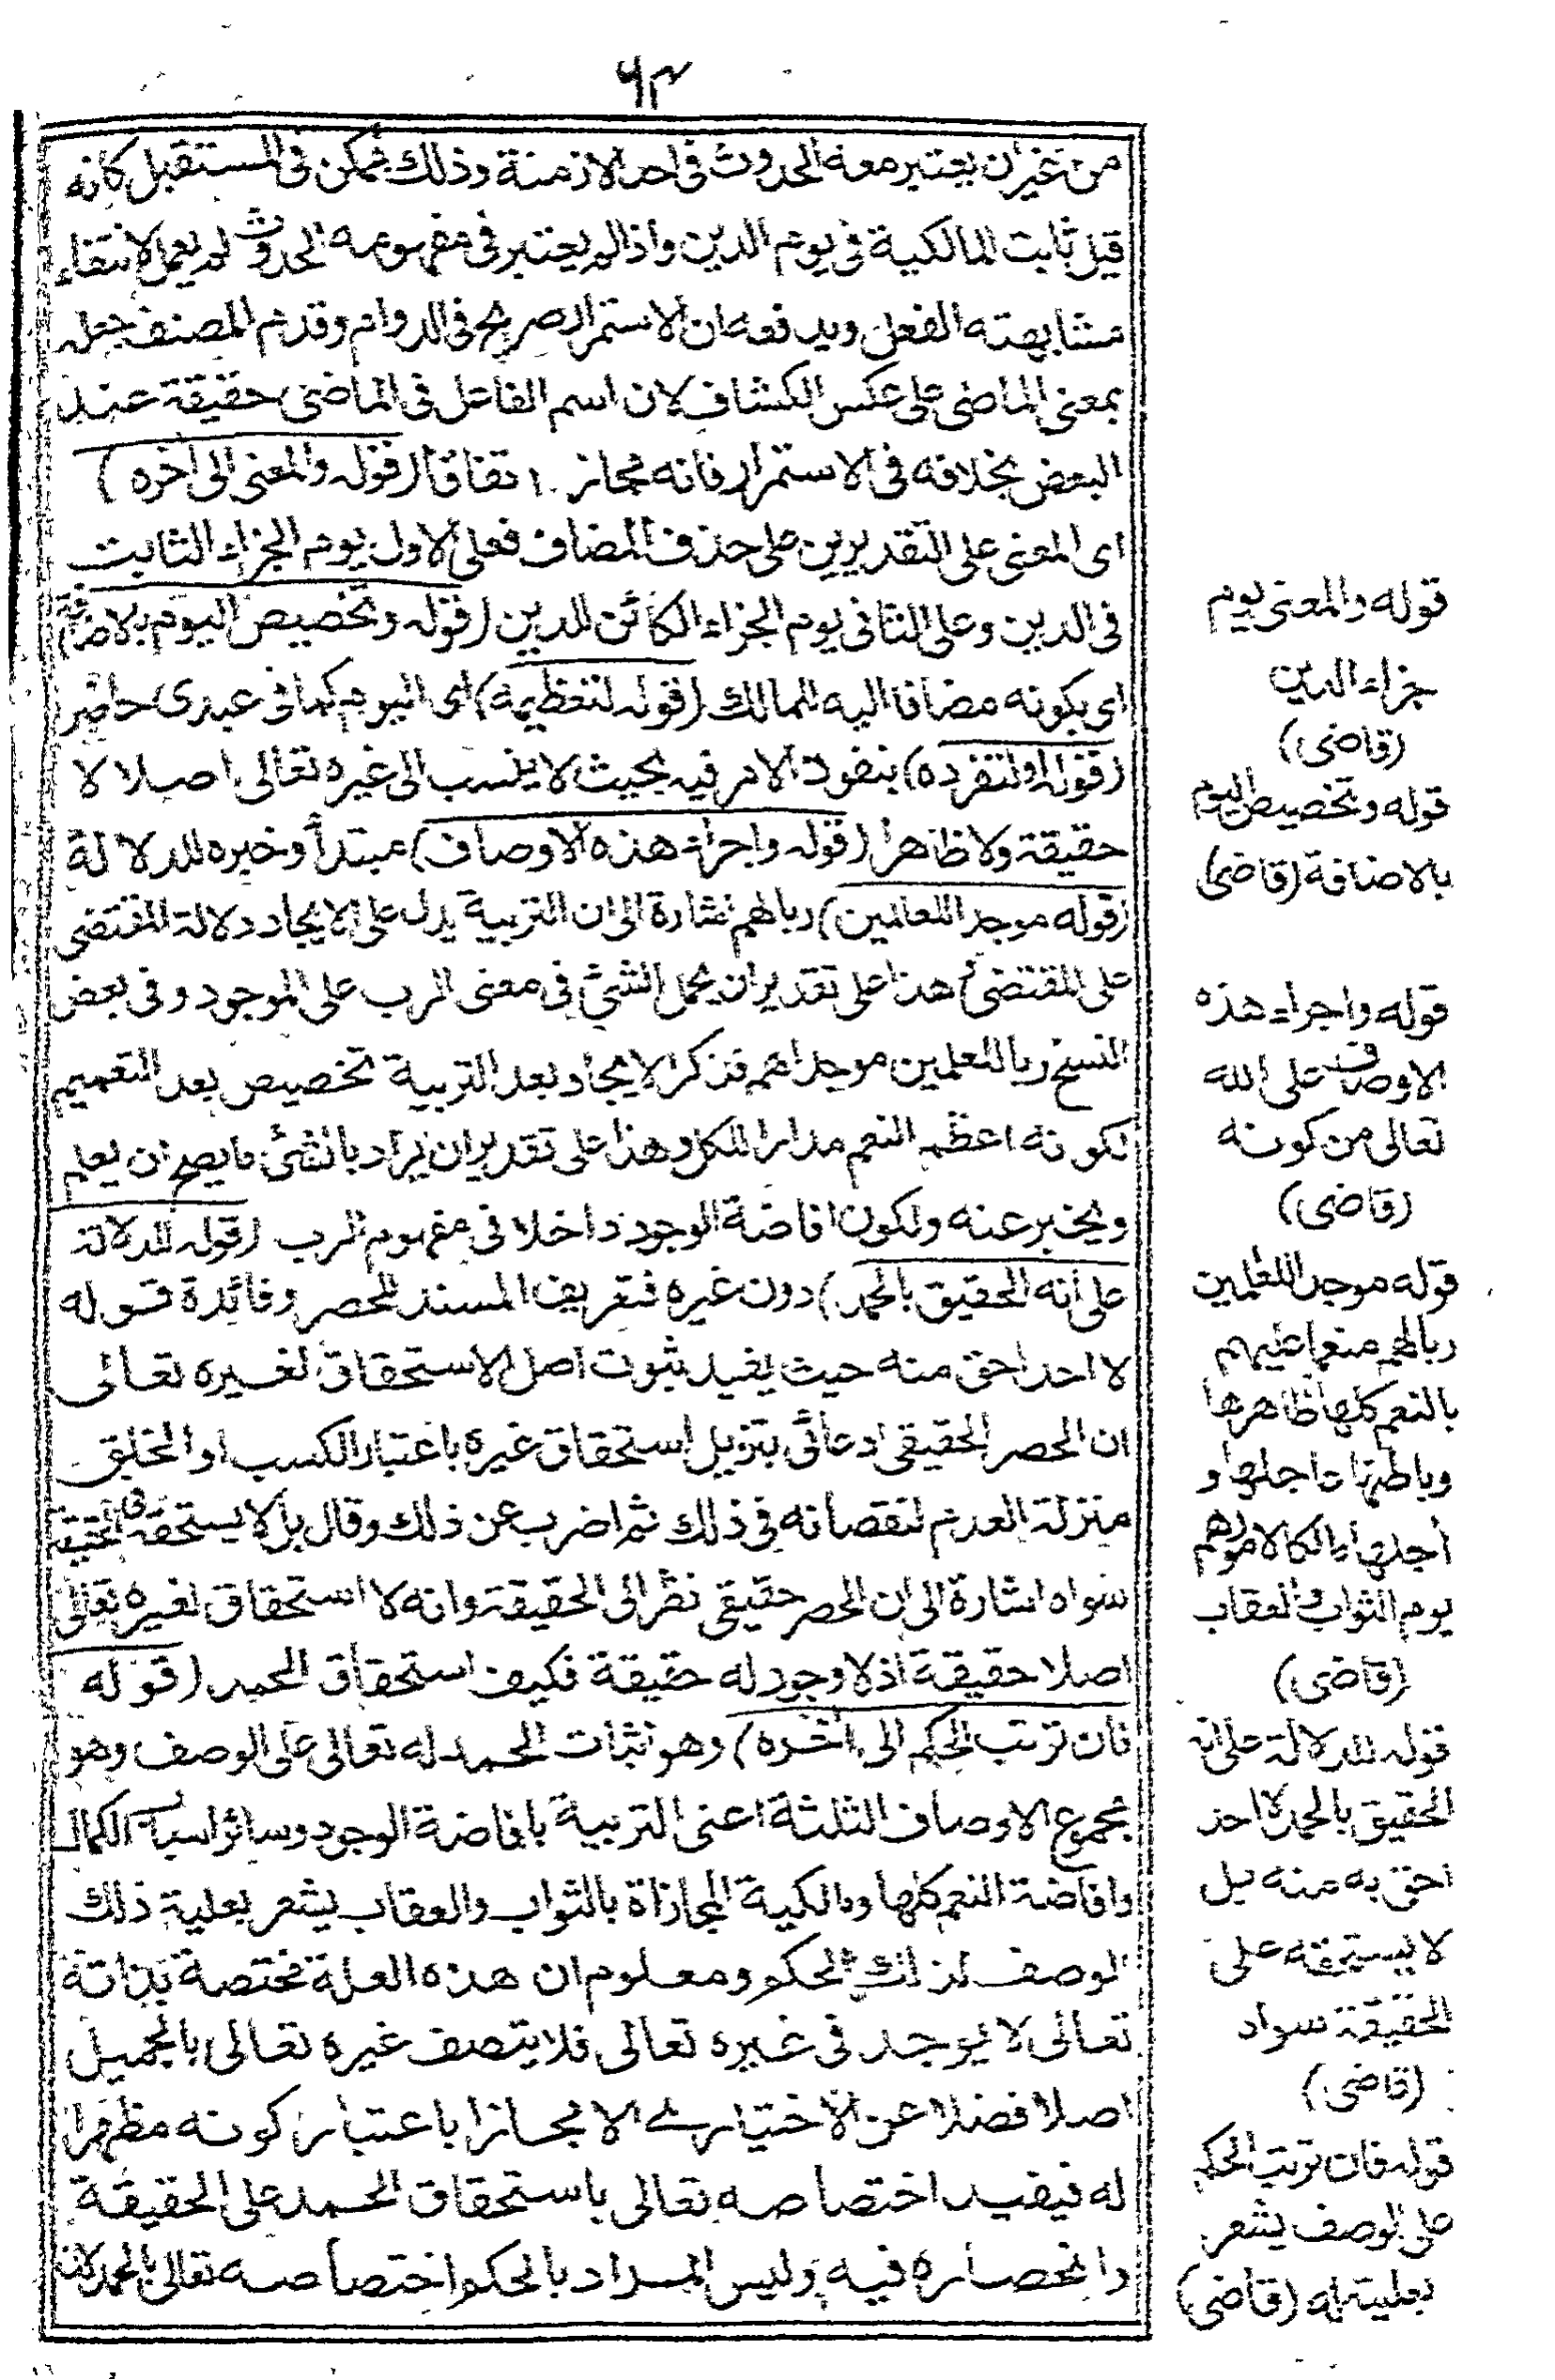 ٦٣
من غير ان يعتبر معه الحدوث فى احد الازمنة وذلك ممكن فى المستقبل كانه
قيل ثابت المالكية فى يوم الدين واذا لم يعتبر فى مفهومه الحدوث لم يعمل لانتفاء
مشابهته الفعل ويدفعه ان الاستمرار صريح فى الدوام وقدم المصنف جعله
بمعنى الماضى على عكس الكشاف لان اسم الفاعل فى الماضى حقيقة عند
البعض بخلافه فى الاستمرار فانه مجاز اتفاقا (قوله والمعنى الى اخره)
اى المعنى على التقديرين على حذف المضاف فعلى الاول يوم الجزاء الثابت
فى الدين وعلى الثانى يوم الجزاء الكائن للدين (قوله وتخصيص اليوم بالاضافة
اى بكونه مضافا اليه للمالك (قوله لتعظيمه) اى اليوم كما فى عبدى حاضر
(قوله او لتفرده) بنفوذ الامر فيه بحيث لا ينسب الى غيره تعالى اصلا لا
حقيقة ولا ظاهرا (قوله واجراء هذه الاوصاف) مبتدأ وخبره للدلالة
(قوله موجد اللعالمين) ربا لهم اشارة الى ان التربية يدل على الايجاد دلالة المقتضى
على المقتضى هذا على تقدير ان يحمل الشئ فى معنى الرب على الموجود وفى بعض
النسخ ربا للعلمين موجدا لهم فذكر الايجاد بعد التربية تخصيص بعد التعميم
لكونه اعظم النعم مدارا للكل وهذا على تقدير ان يراد بالشئ ما يصح ان يعلم
ويخبر عنه ولكون افاضة الوجود داخلا فى مفهوم الرب (قوله للدلالة
على انه الحقيق بالحمد) دون غيره فتعريف المسند للحصر وفائدة قوله
لا احد احق منه حيث يفيد ثبوت اصل الاستحقاق لغيره تعالى
ان الحصر الحقيقى ادعائى بتنزيل استحقاق غيره باعتبار الكسب او الخلق
منزلة العدم لنقصانه فى ذلك ثم اضرب عن ذلك وقال بل لا يستحقه فى الحقيقة
سواه اشارة الى ان الحصر حقيقى نظرا الى الحقيقة وانه لا استحقاق لغيره تعالى
اصلا حقيقة اذ لا وجود له حقيقة فكيف استحقاق الحمد (قوله
فان ترتب الحكم الى اخره) وهو اثبات الحمد له تعالى على الوصف وهو
مجموع الاوصاف الثلثة اعنى التربية بافاضة الوجود وسائر اسباب الكمال
وافاضة النعم كلها ومالكية المجازاة بالثواب والعقاب يشعر بعلية ذلك
الوصف لذلك الحكم ومعلوم ان هذه العلة مختصة بذاتة
تعالى لا يوجد فى غيره تعالى فلا يتصف غيره تعالى بالجميل
اصلا فضلا عن الاختيارى الا مجازا باعتبار كونه مظهرا
له فيفيد اختصاصه تعالى باستحقاق الحمد على الحقيقة
وانحصاره فيه وليس المراد بالحكم اختصاصه تعالى بالحمد لانه
قوله والمعنى يوم
جزاء الدين
(قاضى)
قوله وتخصيص اليوم
بالاضافة (قاضى)
قوله واجراء هذه
الاوصاف على الله
تعالى من كونه
(قاضى)
قوله موجد اللعلمين
ربا لهم منعما عليهم
بالنعم كلها ظاهرها
وباطنها عاجلها و
أجلها مالكا لامورهم
يوم الثواب والعقاب
(قاضى)
قوله للدلالة على انه
الحقيق بالحمد لا احد
احق به منه بل
لا يستحقه على
الحقيقة سواه
(قاضى)
قوله فان ترتب الحكم
على الوصف يشعر
بعليته له (قاضى)